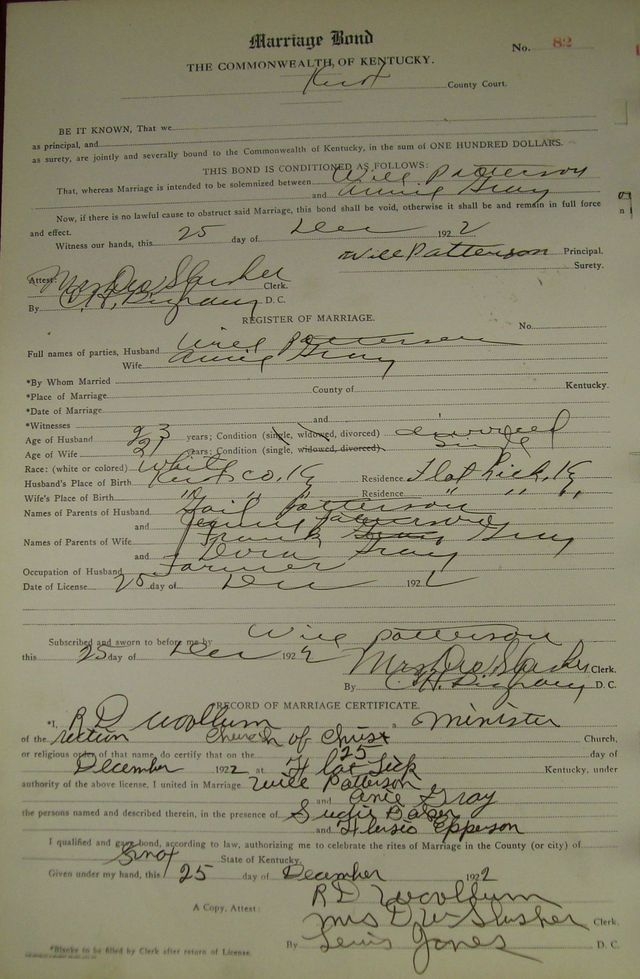 Marriage Bond
No. 82
THE COMMONWEALTH OF KENTUCKY.
Knox County Court.
BE IT KNOWN, That we
as principal, and
as surety, are jointly and severally bound to the Commonwealth of Kentucky, in the sum of ONE HUNDRED DOLLARS.
THIS BOND IS CONDITIONED AS FOLLOWS:
That, whereas Marriage is intended to be solemnized between Will Patterson
and Annie Gray
Now, if there is no lawful cause to obstruct said Marriage, this bond shall be void, otherwise it shall be and remain in full force
and effect.
Witness our hands, this 25 day of Dec 1922
Will Patterson Principal.
Surety.
Attest: Mrs Slusher Clerk.
By D. C.
REGISTER OF MARRIAGE.
No.
Full names of parties, Husband Will Patterson
Wife Annie Gray
*By Whom Married
*Place of Marriage County of Kentucky.
*Date of Marriage
*Witnesses and
Age of Husband 23 years; Condition (single, widowed, divorced) divorced
Age of Wife 21 years; Condition (single, widowed, divorced) Single
Race: (white or colored) White
Husband's Place of Birth Knox co. Ky Residence Flat Lick, Ky
Wife's Place of Birth " " " Residence " " "
Names of Parents of Husband Patterson
and Patterson
Names of Parents of Wife Frank Gray
and Dora Gray
Occupation of Husband Farmer
Date of License 25 day of Dec 1922
Subscribed and sworn to before me by Will Patterson
this 25 day of Dec 1922
Mrs Slusher Clerk.
By D. C.
RECORD OF MARRIAGE CERTIFICATE.
*I, R D Woollum a minister
of the Church of Christ Church,
or religious order of that name, do certify that on the 25 day of
December 1922 at Flat Lick Kentucky, under
authority of the above license, I united in Marriage Will Patterson
and Anie Gray
the persons named and described therein, in the presence of Baker
and Epperson
I qualified and gave bond, according to law, authorizing me to celebrate the rites of Marriage in the County (or city) of
Knox State of Kentucky.
Given under my hand, this 25 day of December 1922
R D Woollum
A Copy, Attest: Mrs D W Slusher Clerk.
By Lewis Jones D. C.
*Blanks to be filled by Clerk after return of License.